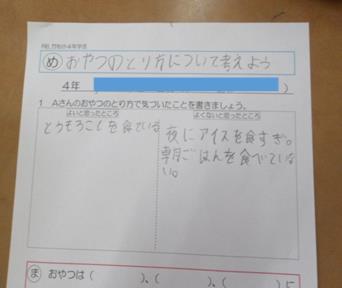 め おやつのとり方について考えよう
4年 )
1 Aさんのおやつのとり方で気づいたことを書きましょう。
よいと思ったところ
よくないと思ったところ
とうもろこしを食べている
夜にアイスを食すぎ。
朝ごはんを食べていな
い。
ま おやつは( )、( )、( )